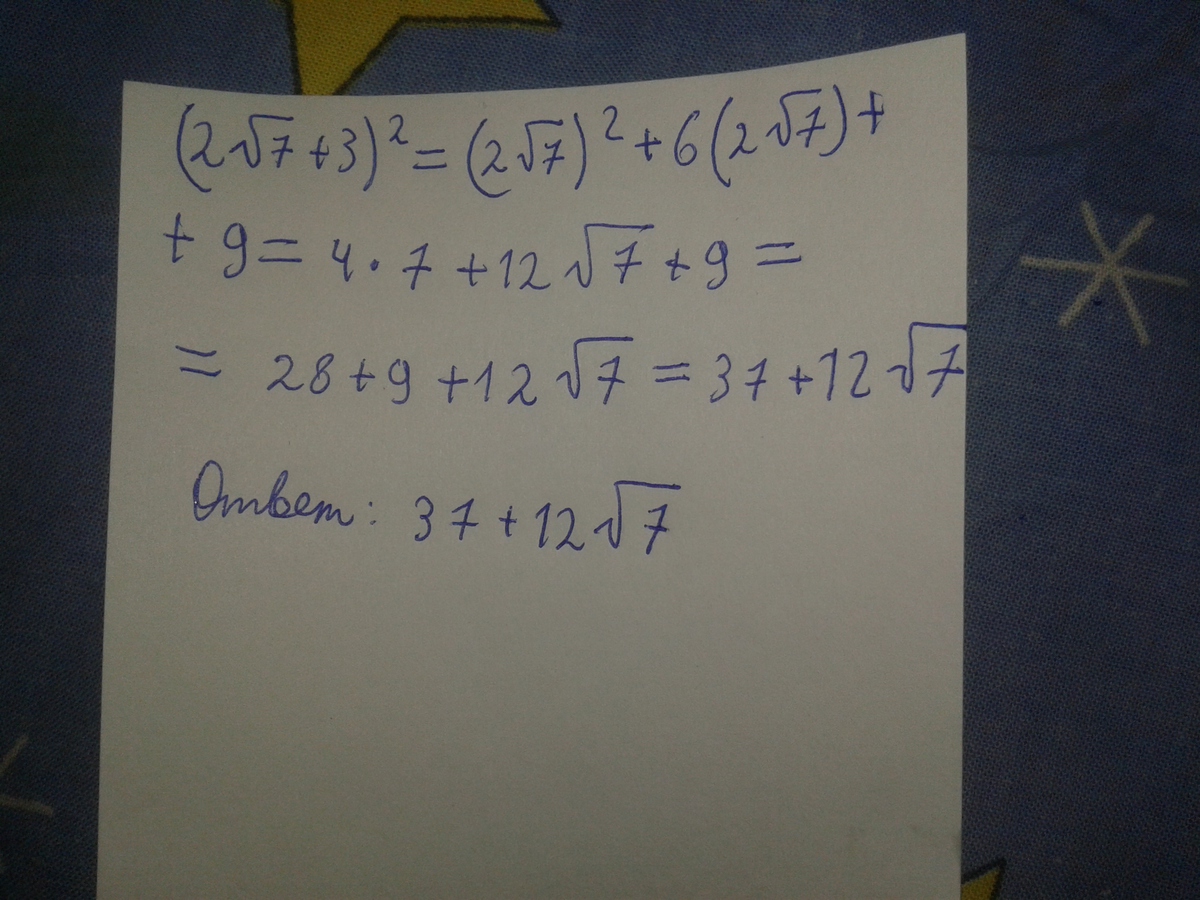 (2√7+3)² = (2√7)² + 6(2√7) +
+ 9 = 4 · 7 + 12√7 + 9 =
= 28 + 9 + 12√7 = 37 + 12√7
Ответ: 37 + 12√7